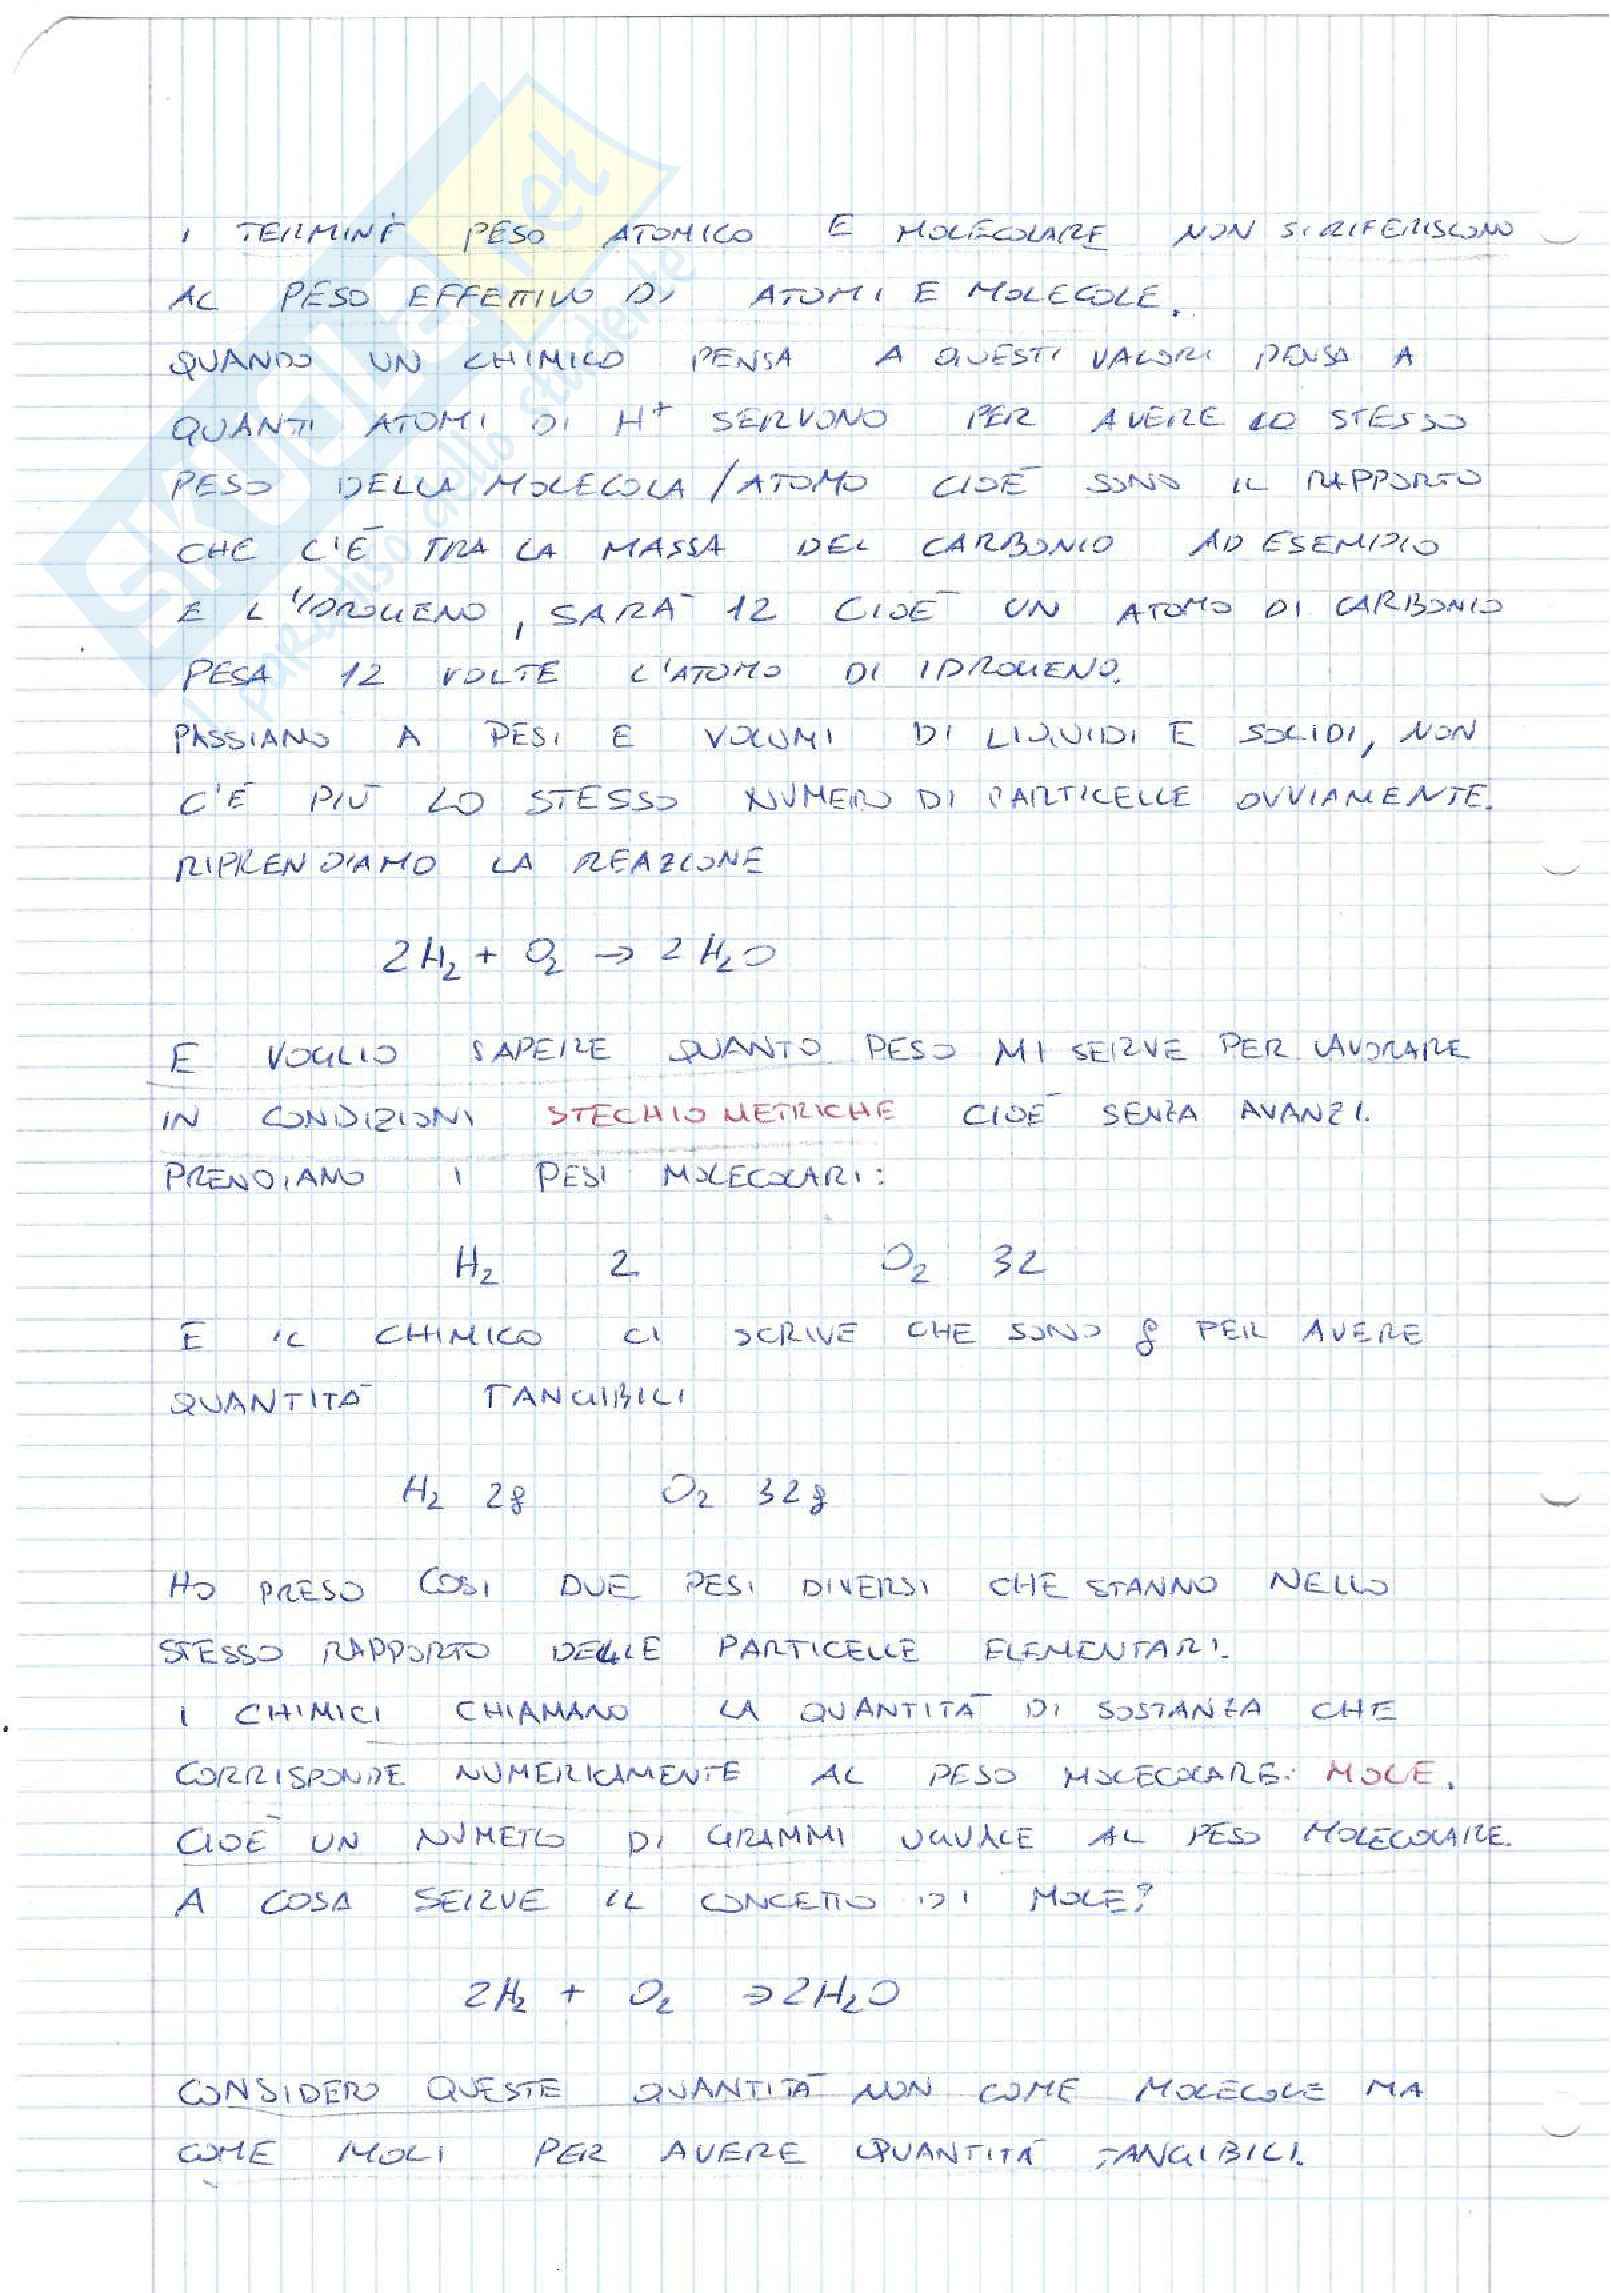 I TERMINI PESO ATOMICO E MOLECOLARE NON SI RIFERISCONO
AL PESO EFFETTIVO DI ATOMI E MOLECOLE.
QUANDO UN CHIMICO PENSA A QUESTI VALORI PENSA A
QUANTI ATOMI DI H⁺ SERVONO PER AVERE LO STESSO
PESO DELLA MOLECOLA/ATOMO CIOÈ SONO IL RAPPORTO
CHE C'È TRA LA MASSA DEL CARBONIO AD ESEMPIO
E L'IDROGENO, SARÀ 12 CIOÈ UN ATOMO DI CARBONIO
PESA 12 VOLTE L'ATOMO DI IDROGENO.
PASSIAMO A PESI E VOLUMI DI LIQUIDI E SOLIDI, NON
C'È PIÙ LO STESSO NUMERO DI PARTICELLE OVVIAMENTE.
RIPRENDIAMO LA REAZIONE
2H₂ + O₂ → 2H₂O
E VOGLIO SAPERE QUANTO PESO MI SERVE PER LAVORARE
IN CONDIZIONI STECHIOMETRICHE CIOÈ SENZA AVANZI.
PRENDIAMO I PESI MOLECOLARI:
H₂ 2 O₂ 32
E IL CHIMICO CI SCRIVE CHE SONO g PER AVERE
QUANTITÀ TANGIBILI
H₂ 2g O₂ 32g
HO PRESO COSI DUE PESI DIVERSI CHE STANNO NELLO
STESSO RAPPORTO DELLE PARTICELLE ELEMENTARI.
I CHIMICI CHIAMANO LA QUANTITÀ DI SOSTANZA CHE
CORRISPONDE NUMERICAMENTE AL PESO MOLECOLARE: MOLE.
CIOÈ UN NUMERO DI GRAMMI UGUALE AL PESO MOLECOLARE.
A COSA SERVE IL CONCETTO DI MOLE?
2H₂ + O₂ → 2H₂O
CONSIDERO QUESTE QUANTITÀ NON COME MOLECOLE MA
COME MOLI PER AVERE QUANTITÀ TANGIBILI.
SKUOLA.net
il paradiso dello studente